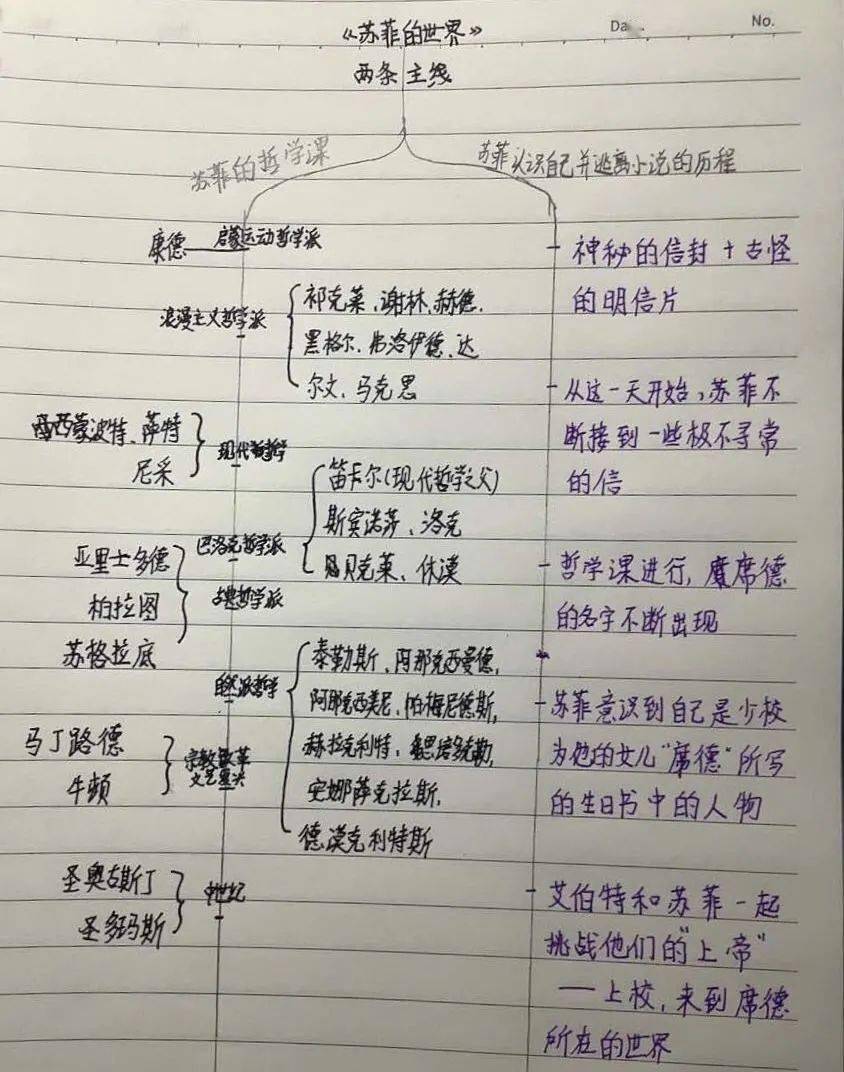 《苏菲的世界》
No.
两条主线
苏菲的哲学课
苏菲认识自己并逃离小说的历程
康德
启蒙运动哲学派
浪漫主义哲学派
祁克果、谢林、赫德、
黑格尔、弗洛伊德、达
尔文、马克思
西蒙波特、萨特
尼采
现代哲学
笛卡尔(现代哲学之父)
斯宾诺莎、洛克
贝克莱、休谟
巴洛克哲学派
亚里士多德
柏拉图
苏格拉底
古典哲学派
自然派哲学
泰勒斯、阿那克西曼德、
阿那克西美尼、帕梅尼德斯,
赫拉克利特、恩培多克勒,
安娜萨克拉斯,
德谟克利特斯
马丁路德
牛顿
宗教改革
文艺复兴
圣奥古斯丁
圣多玛斯
中世纪
- 神秘的信封 + 古怪
的明信片
- 从这一天开始,苏菲不
断接到一些极不寻常
的信
- 哲学课进行,席德
的名字不断出现
- 苏菲意识到自己是少校
为他的女儿“席德”所写
的生日书中的人物
- 艾伯特和苏菲一起
挑战他们的“上帝”
——上校,来到席德
所在的世界